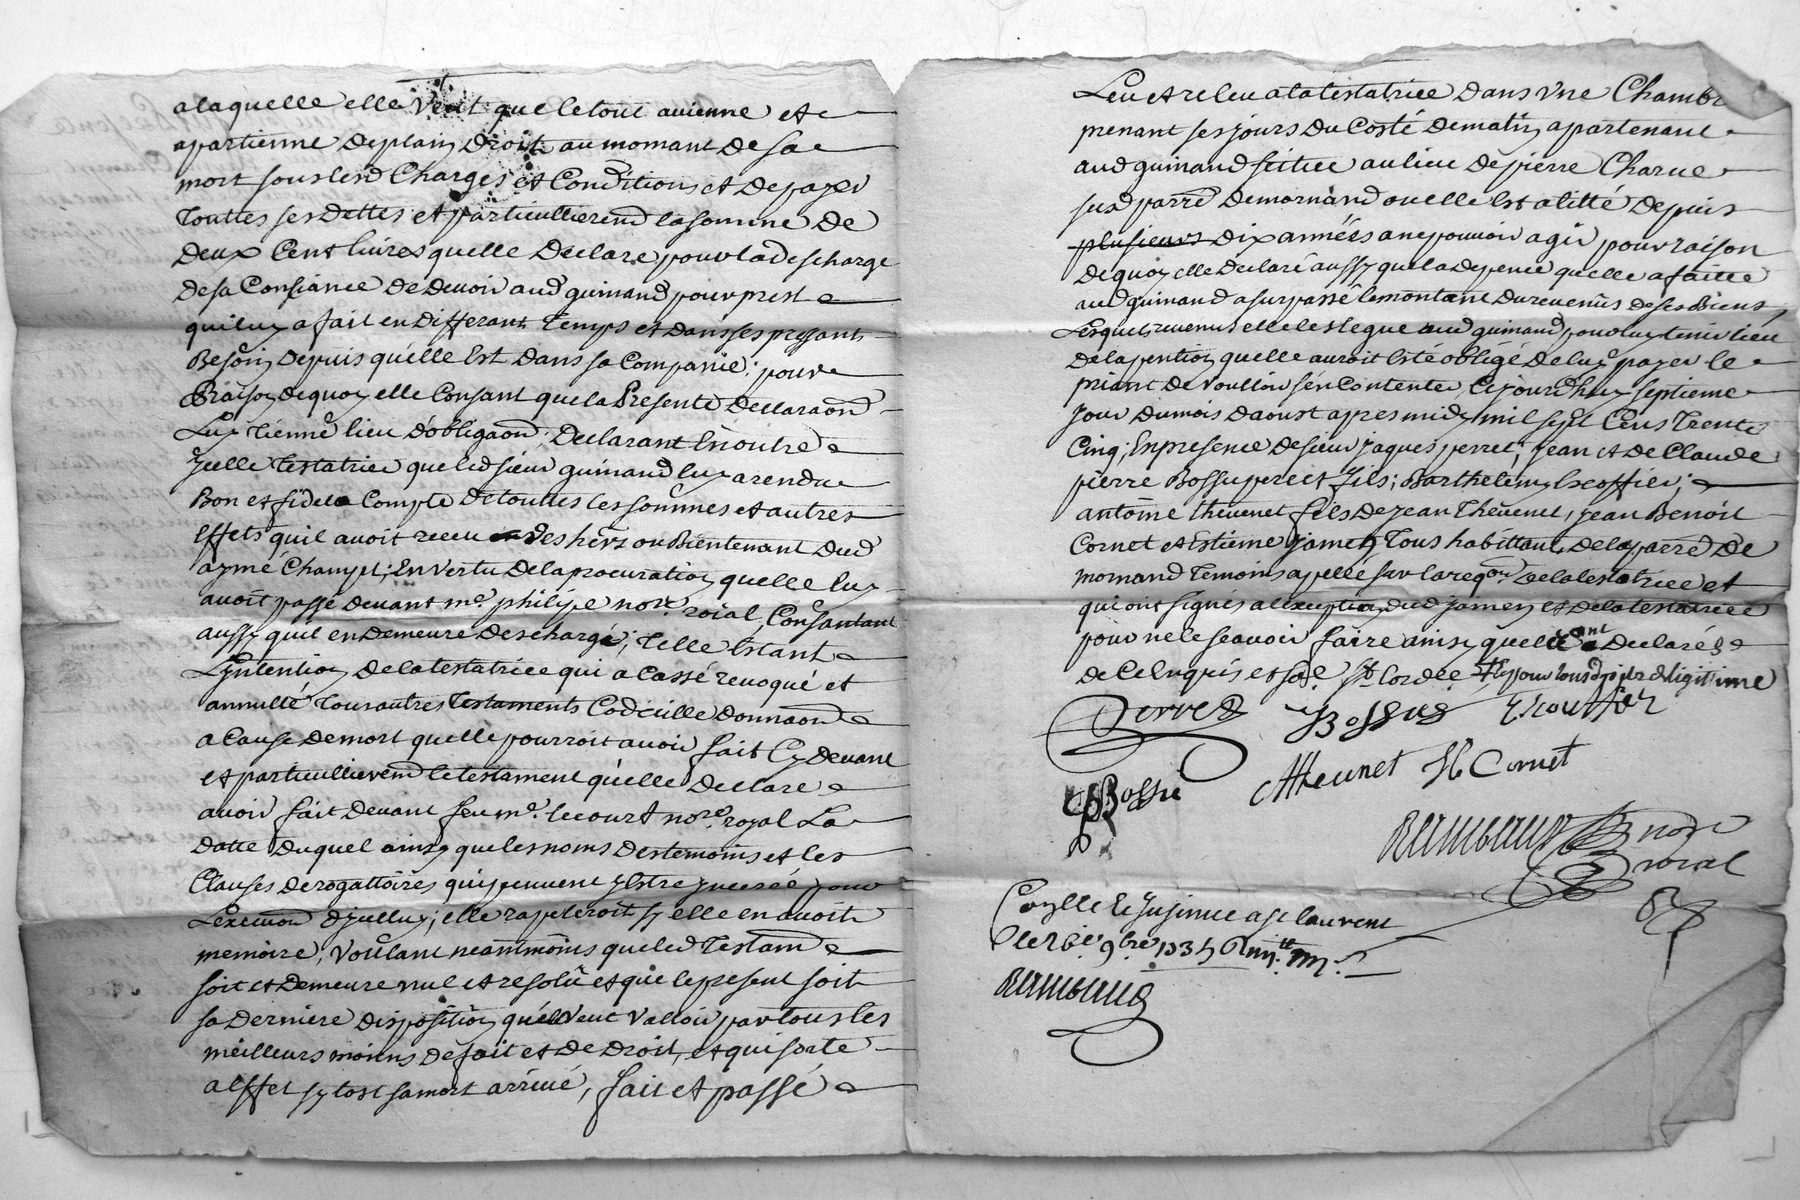 alaquelle elle veut que le tout avienne et
apartienne deplain droit au momant de sa
mort sous lesd Charges et Conditions et de payer
touttes ses dettes et particullieremd la somme de
deux Cent livres quelle declare pour la descharge
de sa Consiance de devoir aud guinand pour prest
quil luy a fait en differant temps et dans ses pressant
Besoin depuis quélle Est dans sa Companie; pour
Raison dequoy elle Consant que la Presente declaraon
Luy tienne lieu dóbligaon; declarant En oultre
Jcelle testatrice que led sieur guinand luy a rendu
Bon et fidele Compte de touttes les sommes et autres
Effets quil avoit receu des hers ou Bientenant dud
aymé Champt; En vertu de la procuration quelle luy
avoit passé devant me. philipe nore. roial, Consantant
aussy quil en demeure deschargé; telle Estant
L'yntention de la testatrice qui a Cassé revoqué et
annullé tous autres testaments Codicille donnaon
a Cause de mort quelle pourroit avoir fait Cy devant
et particullieremd le testament quelle declare
avoir fait devant feu me. lecourt nore. royal La
datte duquel ainsy que les noms des temoins et les
Clauses derogattoires quy peuvent y Estre jncerée pour
Lexecuon djcelluy; elle rapeleroit sy elle en avoit
memoire; voulant neantmoins que led testamd
soit et demeure nul et resolu et que le present soit
sa derniere disposition quéll veut valloir par tous les
meilleurs moiens de fait et de droit, et qui sorte
a Effet sy tost sa mort arrivé, fait et passé
Leu et releu a la testatrice dans vne Chambr
prenant ses jours du Costé de matin apartenant
aud guinand scittée au lieu de pierre Charve
sud parre de mornand ou elle Est alitté depuis
plusieurs dix années a ne pouvoir agir pour raison
de quoy elle declare aussy que la depence quelle a faitte
aud guinand a surpassé le montant du revenus de ses Biens
Lesquels revenus elle les legue aud guinand pour luy tenir lieu
de la pention quelle auroit Esté obligé de luy payer le
priant de voulloir sén Contenter, Cejourdhuy septieme
jour du mois daoust apres midy mil sept Cens trente
Cinq; En presence de sieur jaques perret; jean et de Claude
pierre Bossu pere et fils; Barthelemy Escoffier;
antoine thevenet fils de jean thevenet, jean Benoit
Cornet et Estiene jamen tous habittants de la parre de
mornand temoins apellé sur la reqon de la testatrice et
qui ont signés a lexception dud jamen et de la testatrice
pour ne le scavoir faire ainsy quelle ont declarés
de Ce Enquis et
Perret Bossus Escouffier
Bossu AThevenet JB Cornet
Rambaud nore
roial
Conlle Et Jnsinué a st laurent
Le 9bre 1735
Rambaud